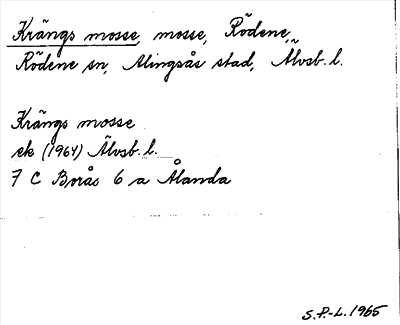 Krängs mosse, mosse, Rödene,
Rödene sn, Alingsås stad, Älvsb. l.
Krängs mosse
ek (1964) Älvsb. l.
7 C Borås 6 a Ålanda
S.P.-L. 1965